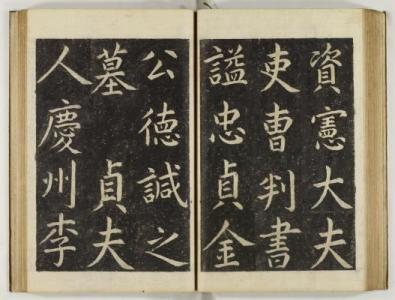 資憲大夫
吏曹判書
謚忠貞金
公德諴之
墓 貞夫
人慶州李